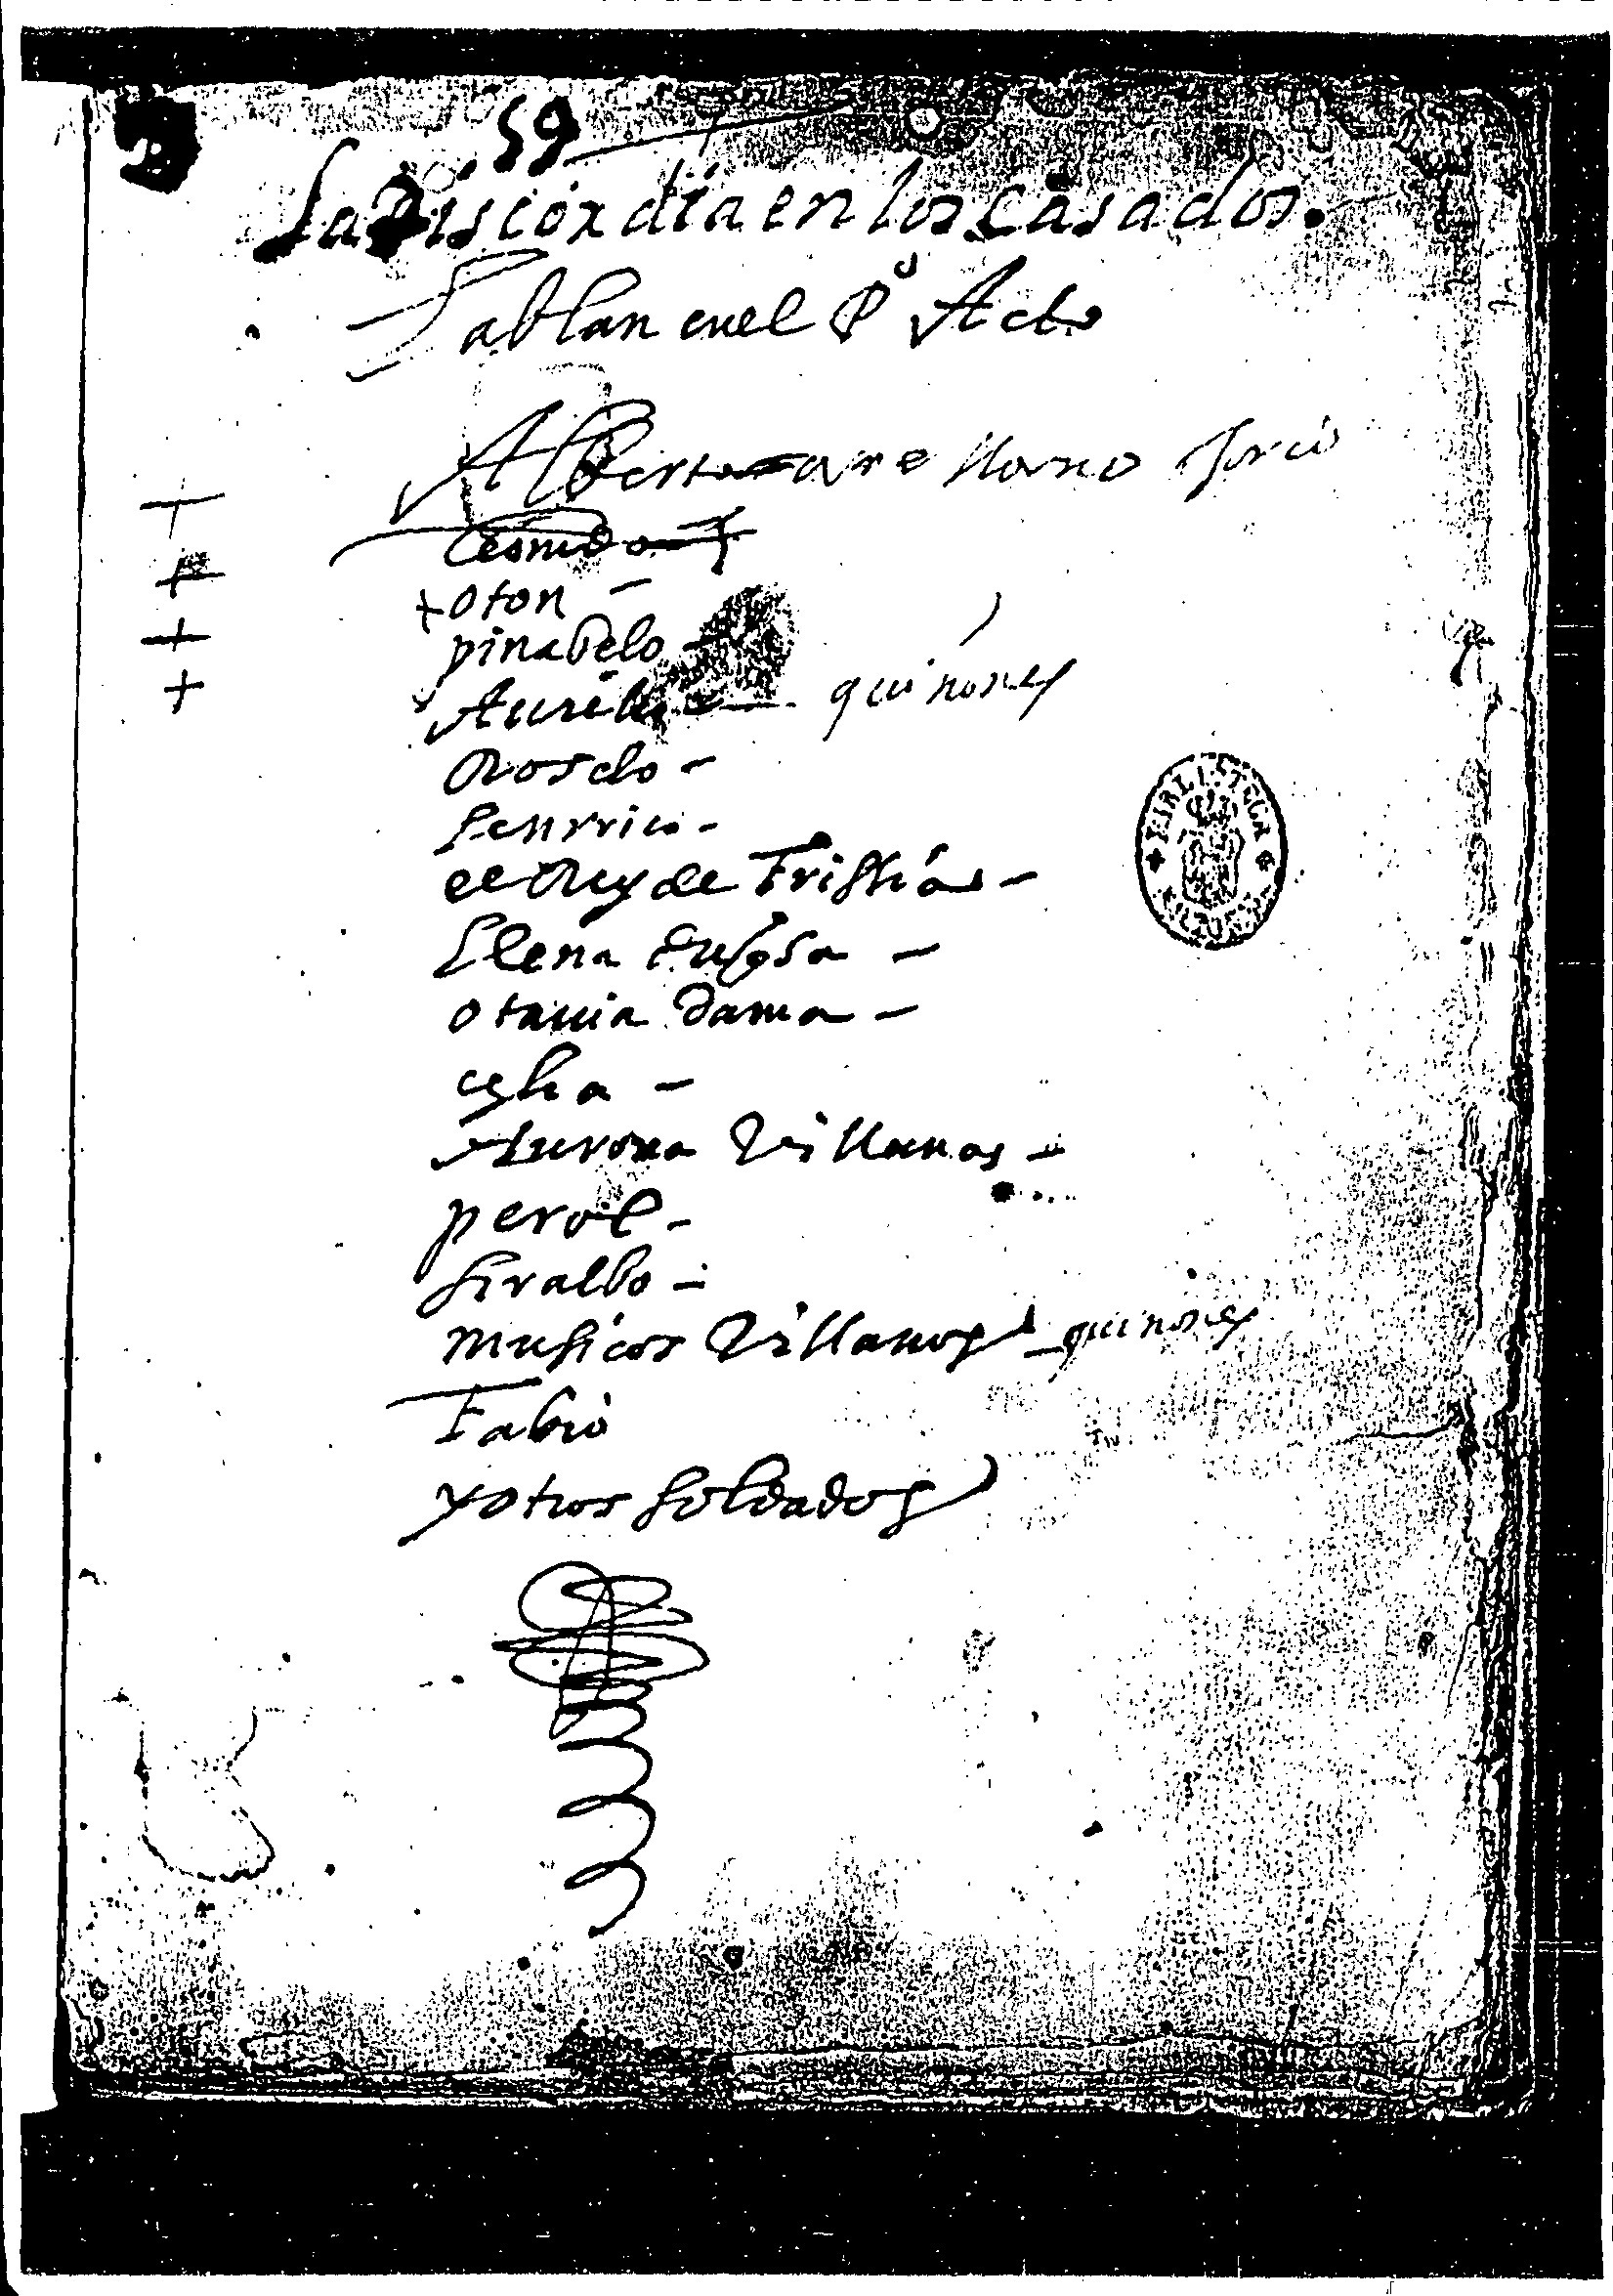 59
La Discordia en los casados.
Hablan en el Pº Acto
Alberto arellano
Leonido
+ oton -
pinabelo -
Aurelio quiñones
Roselo -
Henrrico -
el Rey de Frissia -
Elena duqsa -
otauia dama -
celia -
Aurora Villanas -
perol -
siralbo -
musicos Villanos - quiñones
Fabio
y otros soldados
BIBLIOTECA